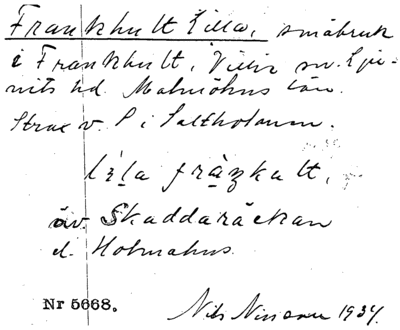 Frankhult Lilla, småbruk
i Frankhult, Villie sn. Lju-
nits hd. Malmöhus län.
Strax v. P i Saltholmen.
li̱la frànkalt,
äv. Skaddaräckan
d. Holmahus.
Nr 5668.
Nils Nilsson 1934.